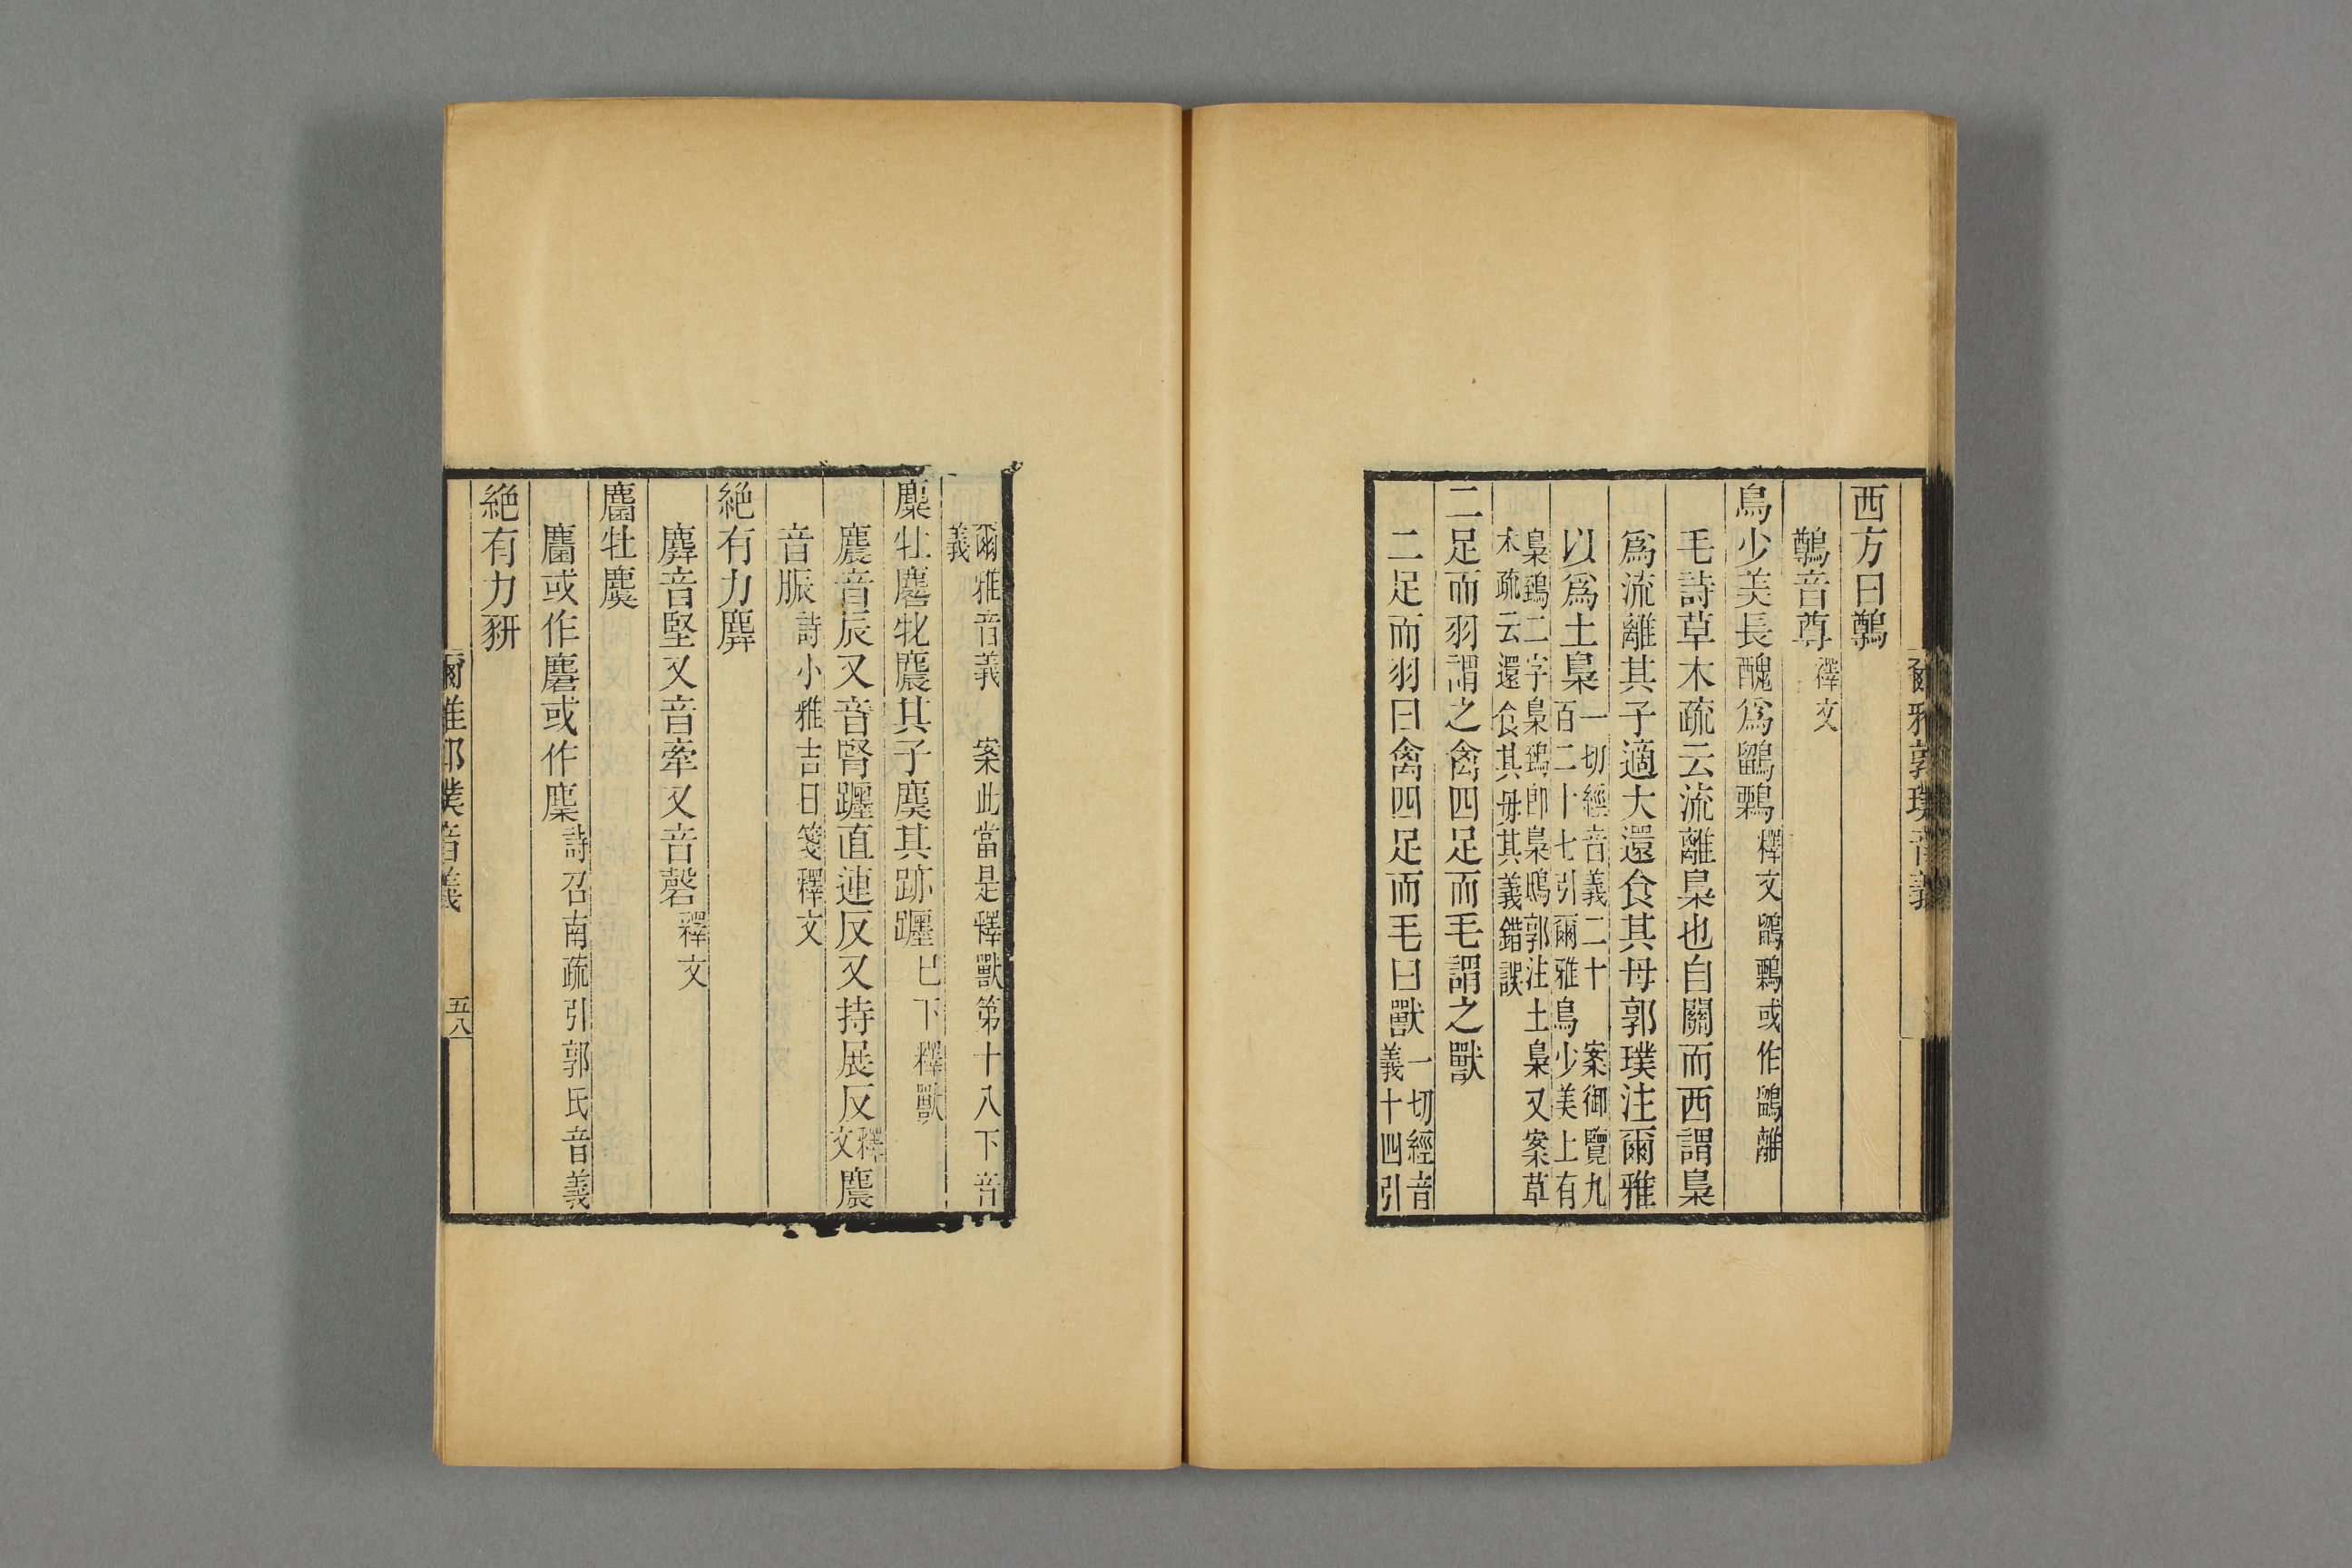 西方曰鷷
鷷音尊釋文
鳥少美長醜爲鶹鷅釋文鶹鷅或作鶹離
毛詩草木疏云流離梟也自關而西謂梟
爲流離其子適大還食其母郭璞注爾雅
以爲土梟一切經音義二十 案御覽九
百二十七引爾雅鳥少美上有
梟鵄二字梟鵄卽梟鴟郭注土梟又案草
木疏云還食其母其義錯誤
二足而羽謂之禽四足而毛謂之獸
二足而羽曰禽四足而毛曰獸一切經音
義十四引
爾雅郭璞音義
爾雅音義 案此當是釋獸第十八下音
義
麋牡麔牝麎其子䴠其跡躔已下釋獸
麎音辰又音腎躔直連反又持展反釋文麎
音脤詩小雅吉日箋釋文
絶有力麉
麉音堅又音牽又音磬釋文
麕牡麌
麕或作麏或作麇詩召南疏引郭氏音義
絶有力豜
爾雅郭璞音義 五八